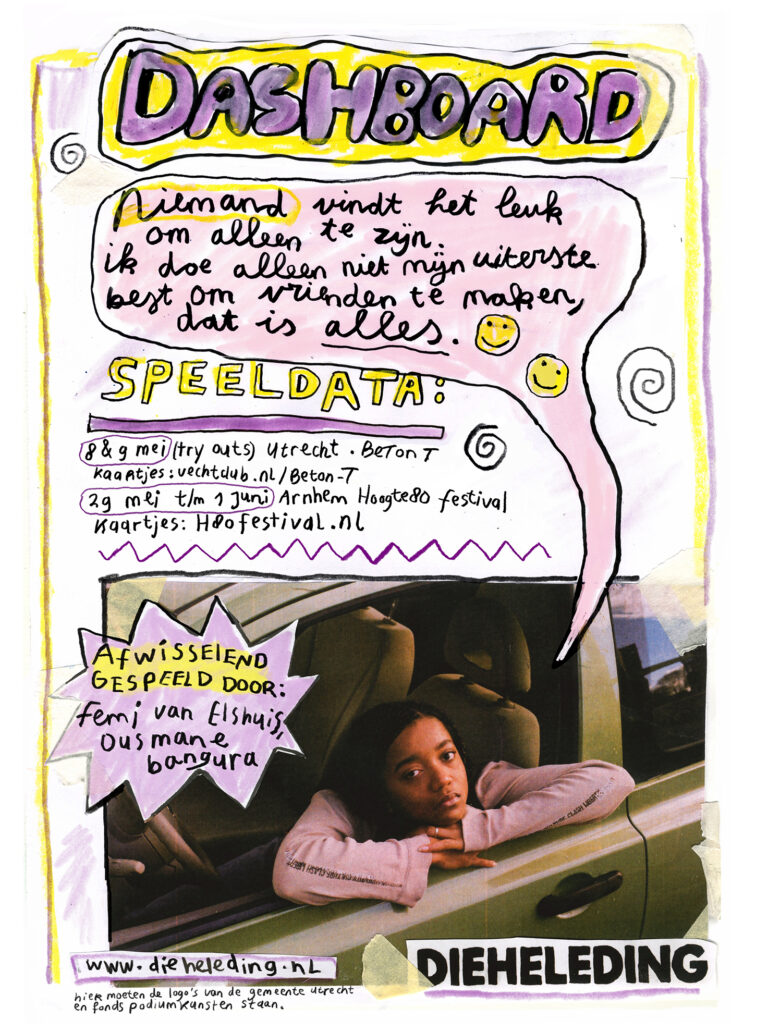 DASHBOARD
Niemand vindt het leuk
om alleen te zijn.
ik doe alleen niet mijn uiterste
best om vrienden te maken,
dat is alles.
SPEELDATA:
8 & 9 mei (try outs) Utrecht · BeTon T
Kaartjes: vechtclub.nl/Beton-T
29 mei t/m 1 juni Arnhem Hoogte80 festival
Kaartjes: H80festival.nl
AFWISSELEND
GESPEELD DOOR:
Femi van Elshuis,
Ousmane
bangura
www.dieheleding.nl
DIEHELEDING
hier moeten de logo's van de gemeente utrecht
en fonds podiumkunsten staan.